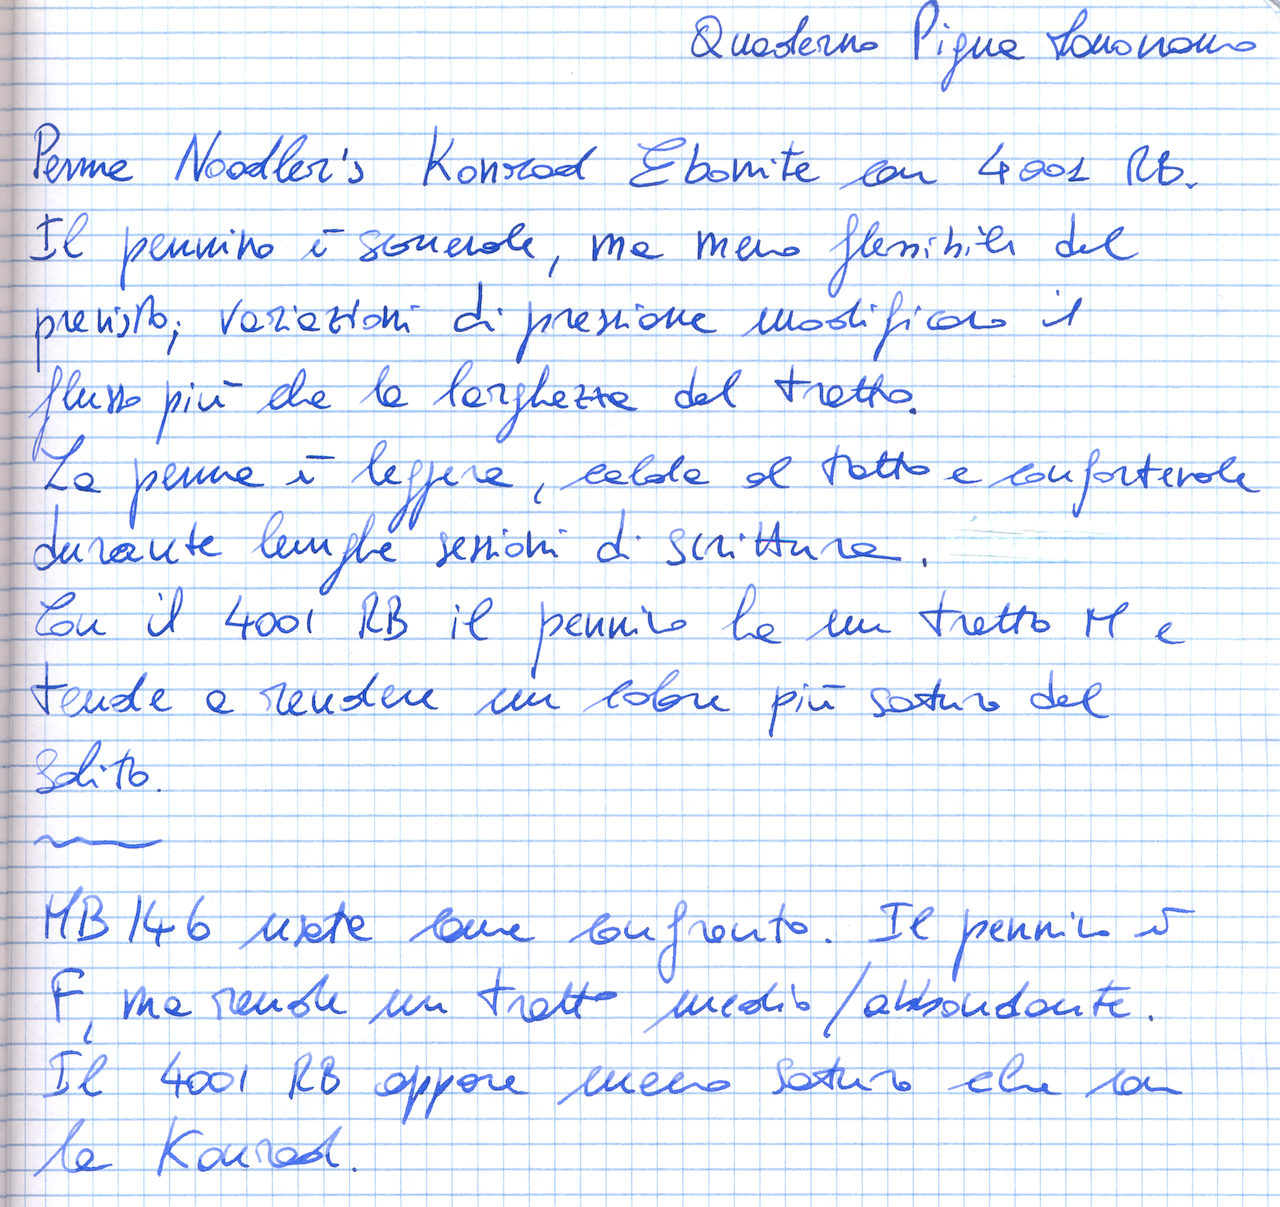 Quaderno Pigna Monocromo
Penna Noodler's Konrad Ebonite con 4001 RB.
Il pennino è scorrevole, ma meno flessibile del
previsto; variazioni di pressione modificano il
flusso più che la larghezza del tratto.
La penna è leggera, calda al tatto e confortevole
durante lunghe sessioni di scrittura.
Con il 4001 RB il pennino ha un tratto M e
tende a rendere un colore più saturo del
solito.
MB 146 usata come confronto. Il pennino è
F, ma rende un tratto medio/abbondante.
Il 4001 RB appare meno saturo che con
la Konrad.